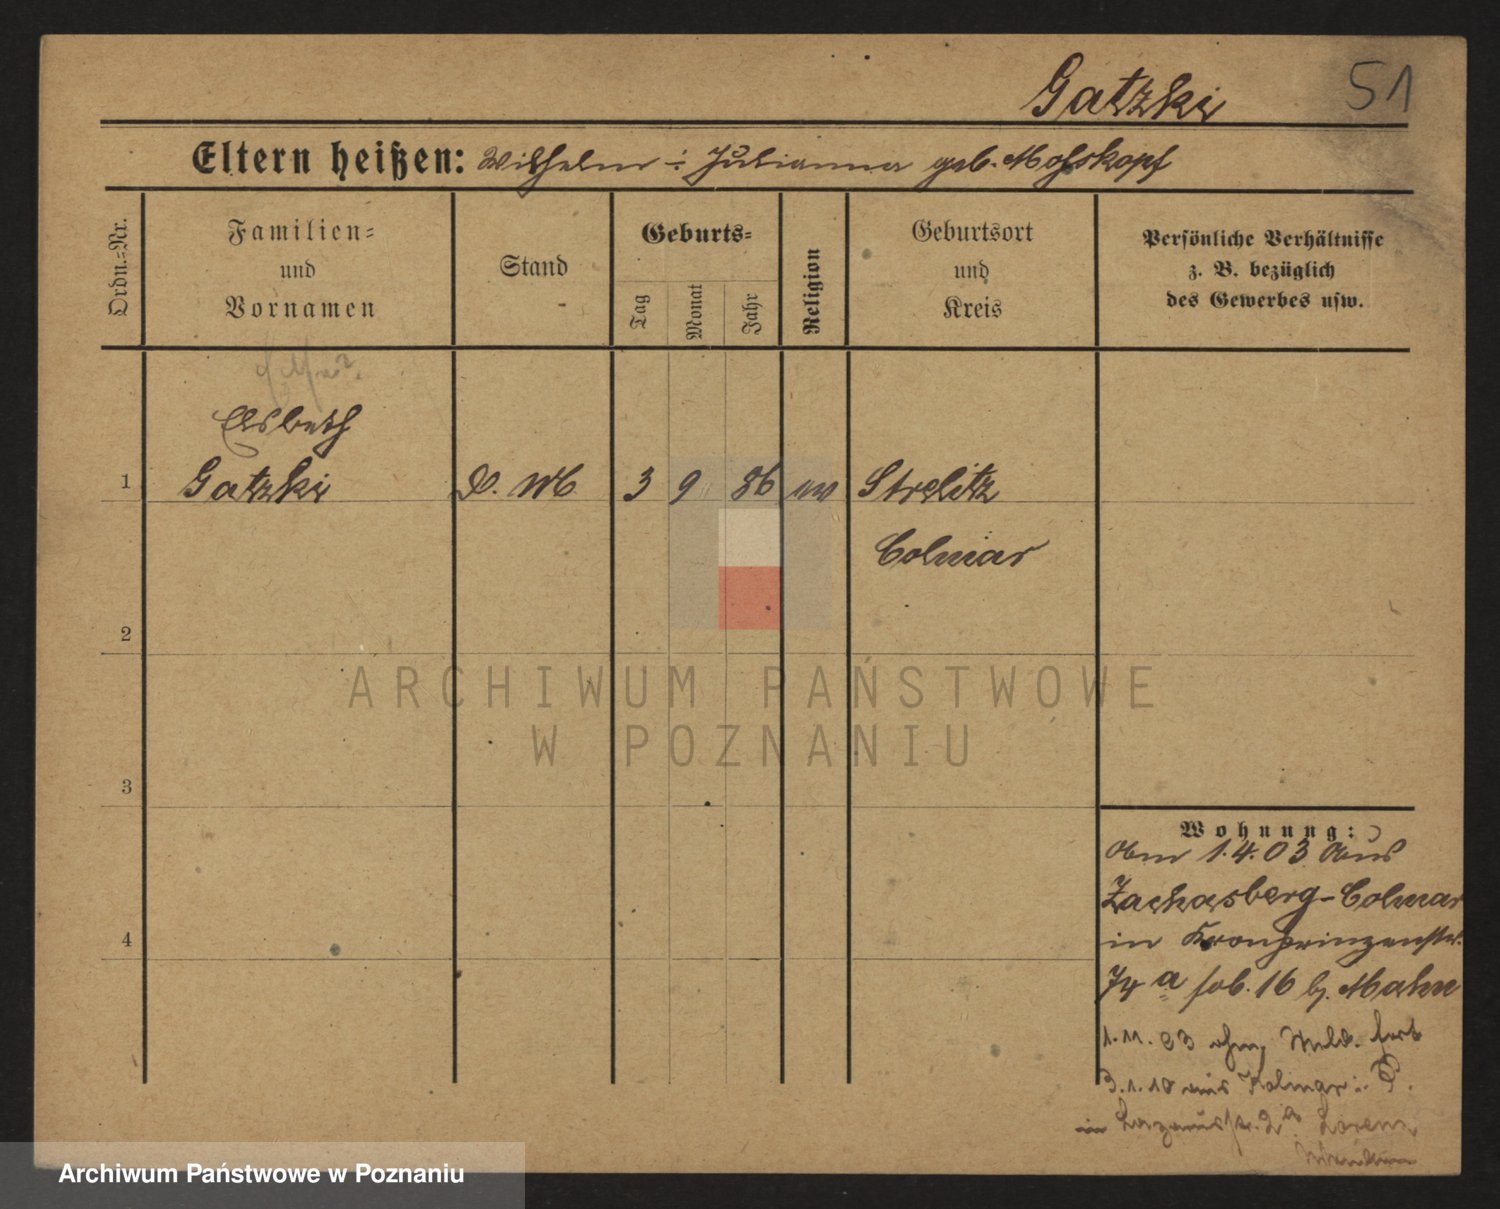 Gatzki
51
Eltern heißen: Wilhelm : Julianna geb. Mohskopf
Ordn.-Nr.
Familien-
und
Vornamen
Stand
Geburts-
Tag
Monat
Jahr
Religion
Geburtsort
und
Kreis
Persönliche Verhältnisse
z. B. bezüglich
des Gewerbes usw.
Elsbeth
1 Gatzki D. M 3 9 86 ev Strelitz
Colmar
2
3
4
Wohnung:
1.4.03 aus
Zachasberg-Colmar
in Kronprinzenstr.
74 a 16 b. Mahn
1.11.03 ohne Meld. fort
3.1.10 aus Kolmar i. P.
in Lazarusstr. 2a Lorenz
ARCHIWUM PAŃSTWOWE
W POZNANIU
Archiwum Państwowe w Poznaniu